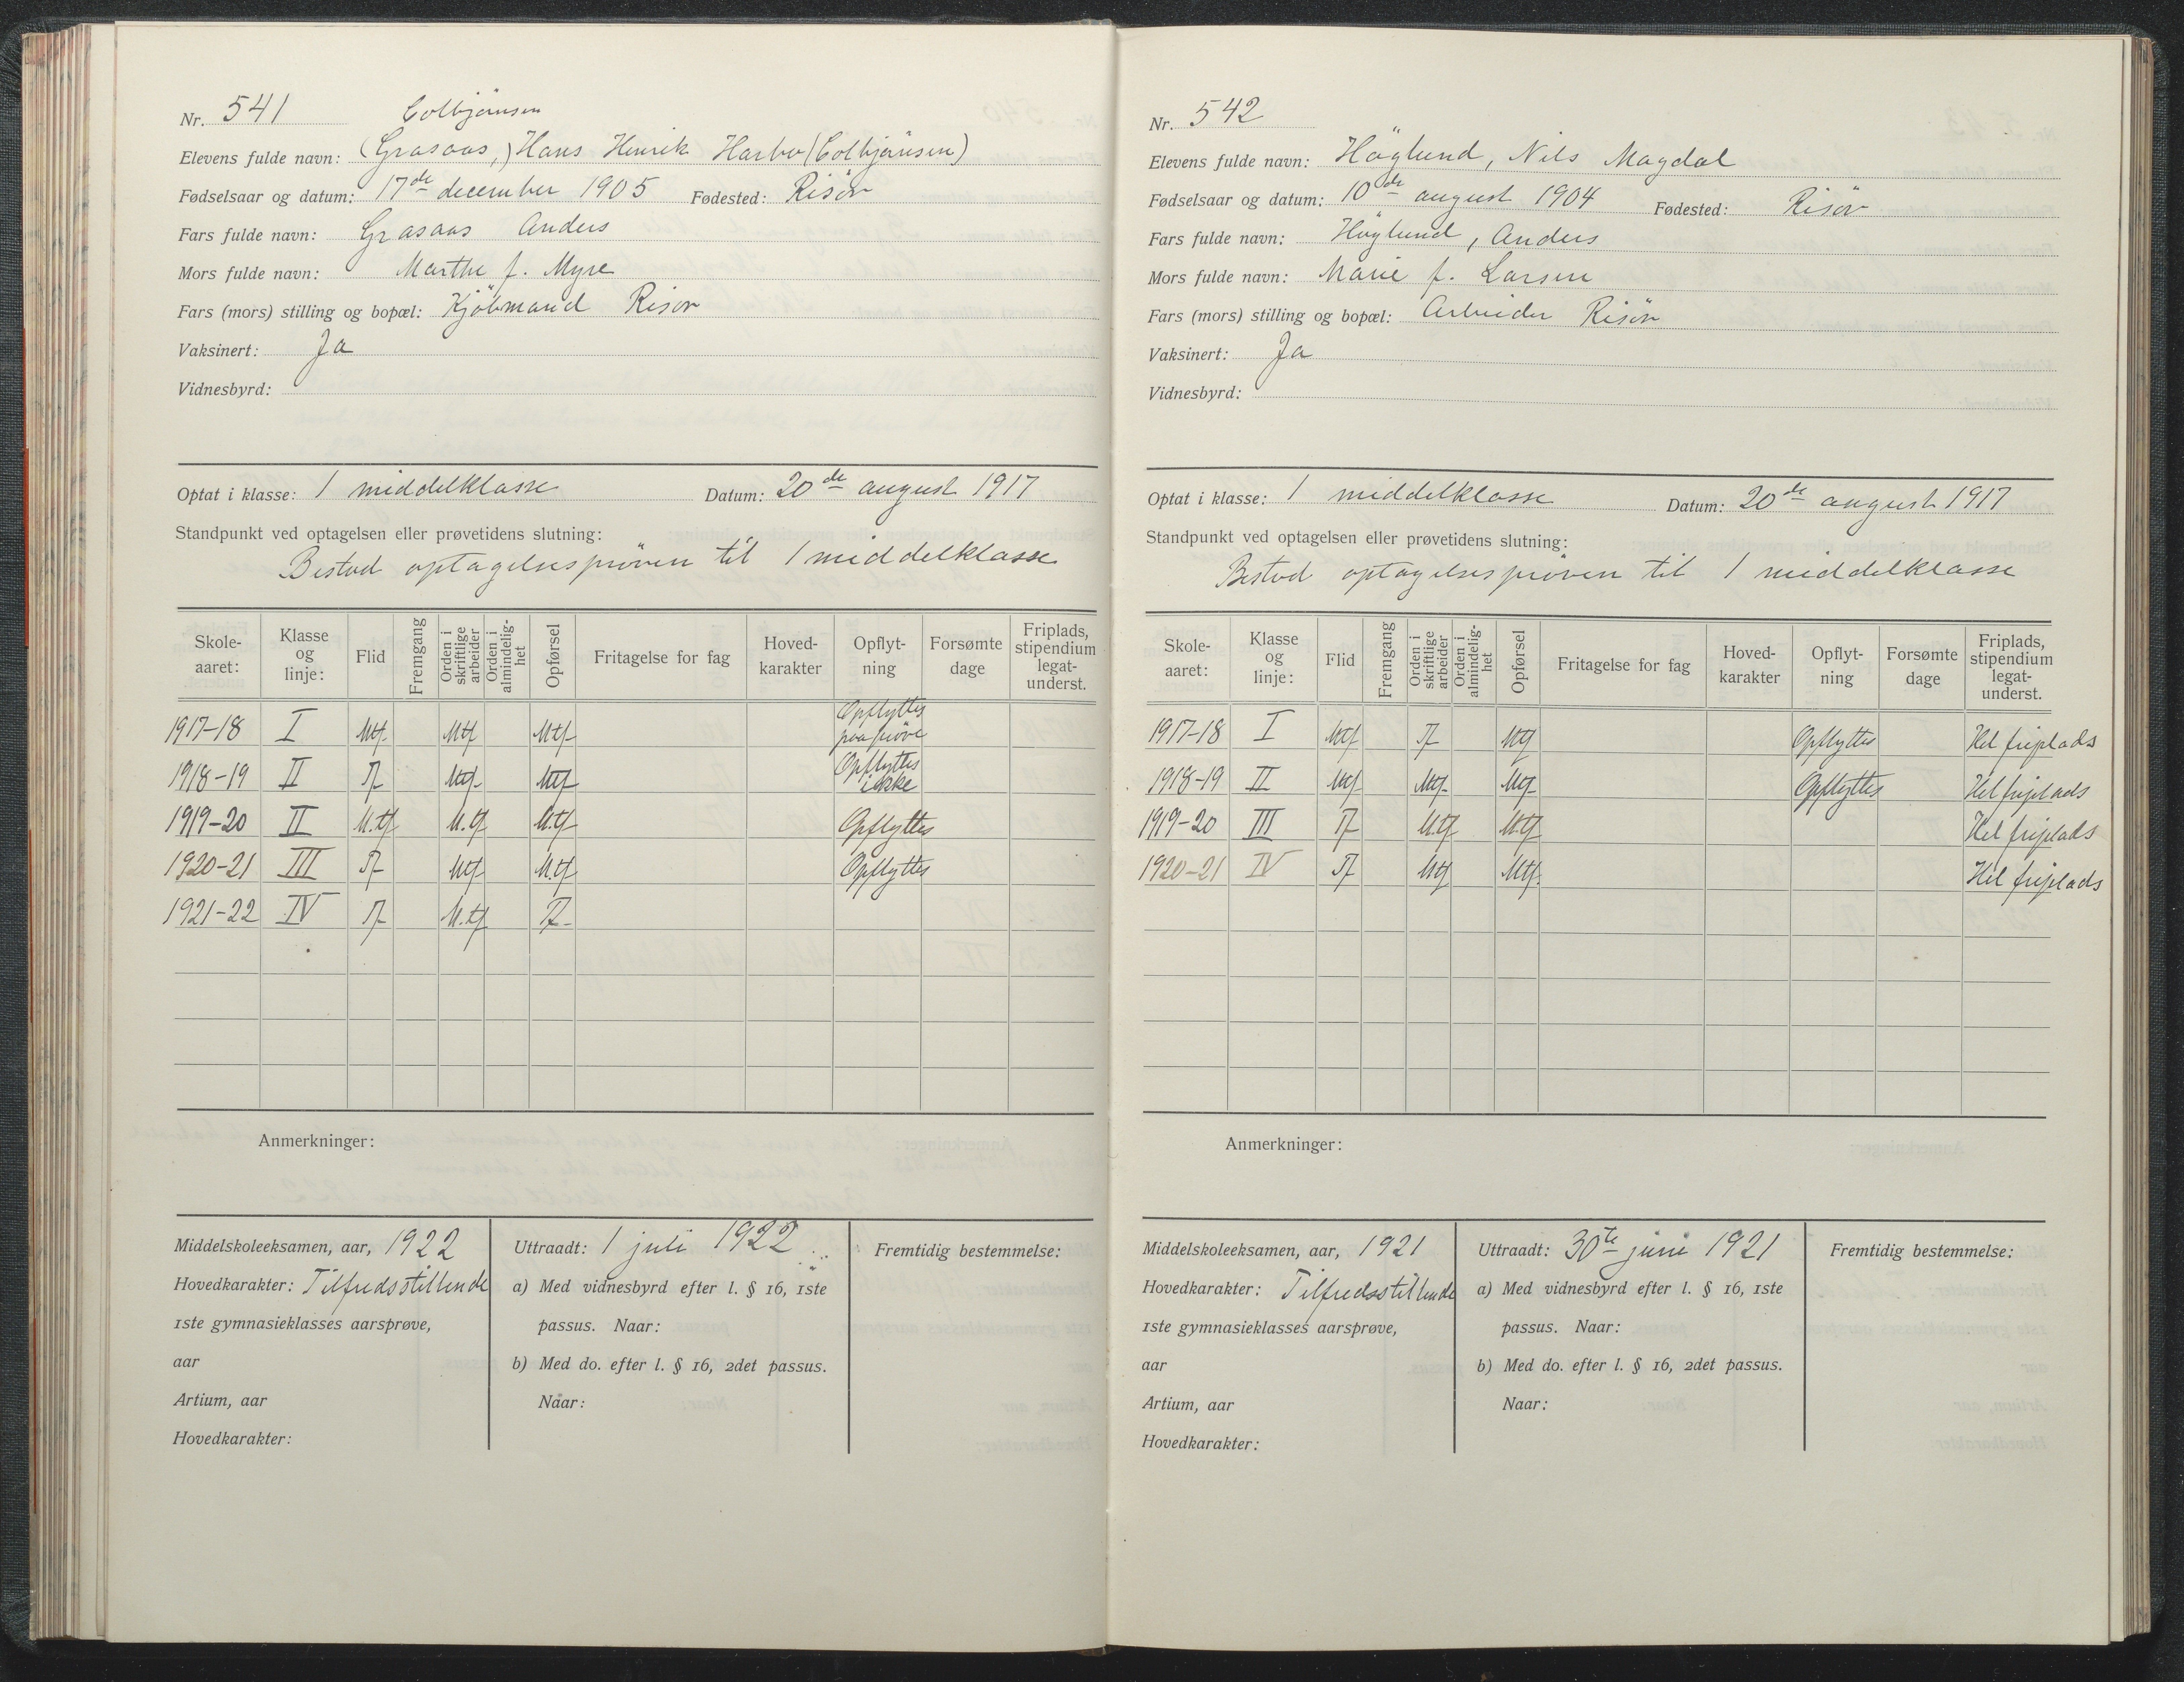 Nr. 541 Colbjörnsen
Elevens fulde navn: (Grasaas,) Hans Henrik Harbo (Colbjörnsen)
Fødselsaar og datum: 17de december 1905 Fødested: Risör
Fars fulde navn: Grasaas Anders
Mors fulde navn: Marthe f. Myre
Fars (mors) stilling og bopæl: Kjöbmand Risör
Vaksinert: Ja
Vidnesbyrd:
Optat i klasse: 1 middelklasse Datum: 20de august 1917
Standpunkt ved optagelsen eller prøvetidens slutning:
Bestod optagelsesprøven til 1 middelklasse
Skole-aaret: Klasse og linje: Flid Fremgang Orden i skriftlige arbeider Orden i almindelig-het Opførsel Fritagelse for fag Hoved-karakter Opflyt-ning Forsømte dage Friplads, stipendium legat-underst.
1917-18 I Mtf Mtf Mtf Opflyttes paa pröve
1918-19 II Tf Mtf Mtf Opflyttes ikke
1919-20 II M.tf M.tf M.tf Opflyttes
1920-21 III Tf Mtf M.tf Opflyttes
1921-22 IV Tf M.tf Tf
Anmerkninger:
Middelskoleeksamen, aar, 1922
Hovedkarakter: Tilfredsstillende
1ste gymnasieklasses aarsprøve,
aar
Artium, aar
Hovedkarakter:
Uttraadt: 1 juli 1922
a) Med vidnesbyrd efter l. § 16, 1ste
passus. Naar:
b) Med do. efter l. § 16, 2det passus.
Naar:
Fremtidig bestemmelse:
Nr. 542
Elevens fulde navn: Höglund, Nils Magdal
Fødselsaar og datum: 10de august 1904 Fødested: Risör
Fars fulde navn: Höglund, Anders
Mors fulde navn: Marie f. Larsen
Fars (mors) stilling og bopæl: Arbeider Risör
Vaksinert: Ja
Vidnesbyrd:
Optat i klasse: 1 middelklasse Datum: 20de august 1917
Standpunkt ved optagelsen eller prøvetidens slutning:
Bestod optagelsesprøven til 1 middelklasse
Skole-aaret: Klasse og linje: Flid Fremgang Orden i skriftlige arbeider Orden i almindelig-het Opførsel Fritagelse for fag Hoved-karakter Opflyt-ning Forsømte dage Friplads, stipendium legat-underst.
1917-18 I Mtf Tf Mtf Opflyttes Hel friplads
1918-19 II Mtf Mtf Mtf Opflyttes Hel friplads
1919-20 III Tf M.tf M.tf Hel friplads
1920-21 IV Tf Mtf Mtf. Hel friplads
Anmerkninger:
Middelskoleeksamen, aar, 1921
Hovedkarakter: Tilfredsstillende
1ste gymnasieklasses aarsprøve,
aar
Artium, aar
Hovedkarakter:
Uttraadt: 30te juni 1921
a) Med vidnesbyrd efter l. § 16, 1ste
passus. Naar:
b) Med do. efter l. § 16, 2det passus.
Naar:
Fremtidig bestemmelse: